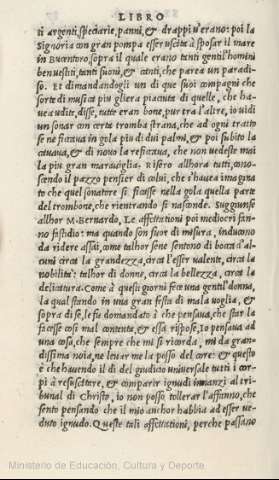 LIBRO
ti argenti, speciarie, panni, & drappi u'erano: poi la
Signoria con gran pompa esser uscita à sposar il mare
in Bucentoro sopra il quale erano tanti gentil'homini
ben uestiti, tanti suoni, & canti, che parea un paradi-
so. Et dimandandogli un di que suoi compagni che
sorte di musica piu gli era piaciuta di quelle, che ha-
uea udite, disse, tutte eran bone, pur tra l'altre, io uidi
un sonar con certa tromba strana, che ad ogni tratto
se ne ficcaua in gola piu di dui palmi, & poi subito la
cauaua, & di nouo la reficcaua, che non uedeste mai
la piu gran marauiglia. Risero allhora tutti, cono-
scendo il pazzo pensier di colui, che s'hauea imagina
to che quel sonator si ficcasse nella gola quella parte
del trombone, che rientrando si nasconde. Suggiunse
allhor M. Bernardo, Le affettationi poi mediocri fan-
no fastidio: ma quando son fuor di misura, inducono
da ridere assai, come talhor sene sentono di bocca d'al-
cuni circa la grandezza, circa l'esser ualente, circa la
nobilità: talhor di donne, circa la bellezza, circa la
delicatura. Come à questi giorni fece una gentil'donna,
la qual stando in una gran festa di mala uoglia, &
sopra di se, le fu domandato à che pensaua, che star la
facesse cosi mal contenta, & essa rispose, Io pensaua ad
una cosa, che sempre che mi si ricorda, mi da gran-
dissima noia, ne leuar me la posso del core: & questo
è che hauendo il di del giudicio uniuersale tutti i cor-
pi à resuscitare, & comparir ignudi innanzi al tri-
bunal di Christo, io non posso tollerar l'affanno, che
sento pensando che il mio anchor habbia ad esser ue-
duto ignudo. Queste tali affettationi, perche passano
Ministerio de Educación, Cultura y Deporte